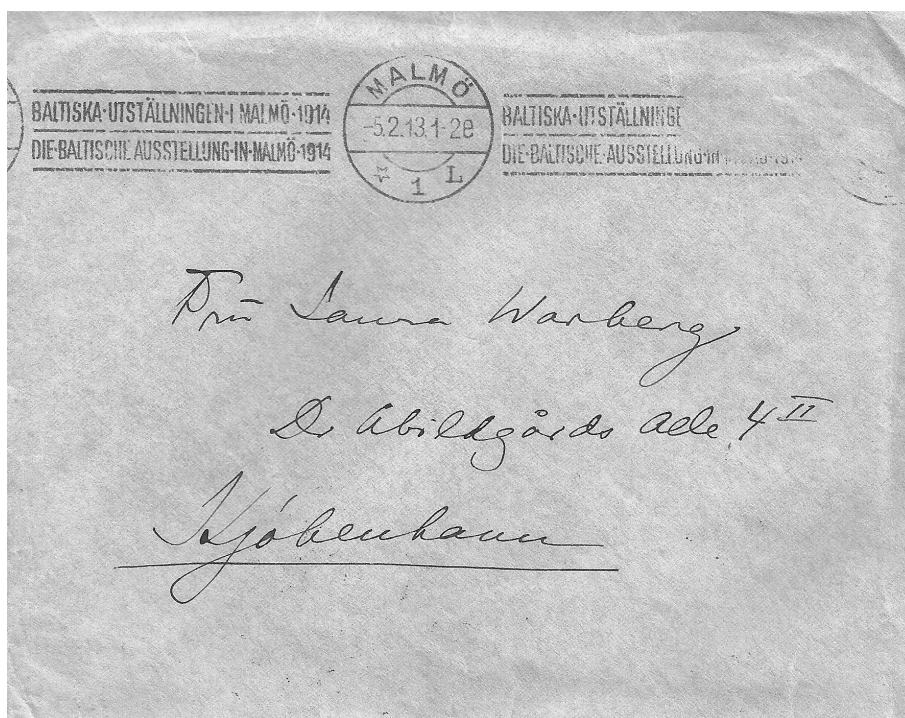 BALTISKA·UTSTÄLLNINGEN·I MALMÖ·1914
DIE·BALTISCHE AUSSTELLUNG·IN·MALMÖ·1914
MALMÖ
-5.2.13.1-2e
1 L
BALTISKA·UTSTÄLLNINGE
DIE·BALTISCHE·AUSSTELLUNG·IN
Fru Laura Warberg
Dr Abildgårds Alle 4 II
Kjøbenhavn